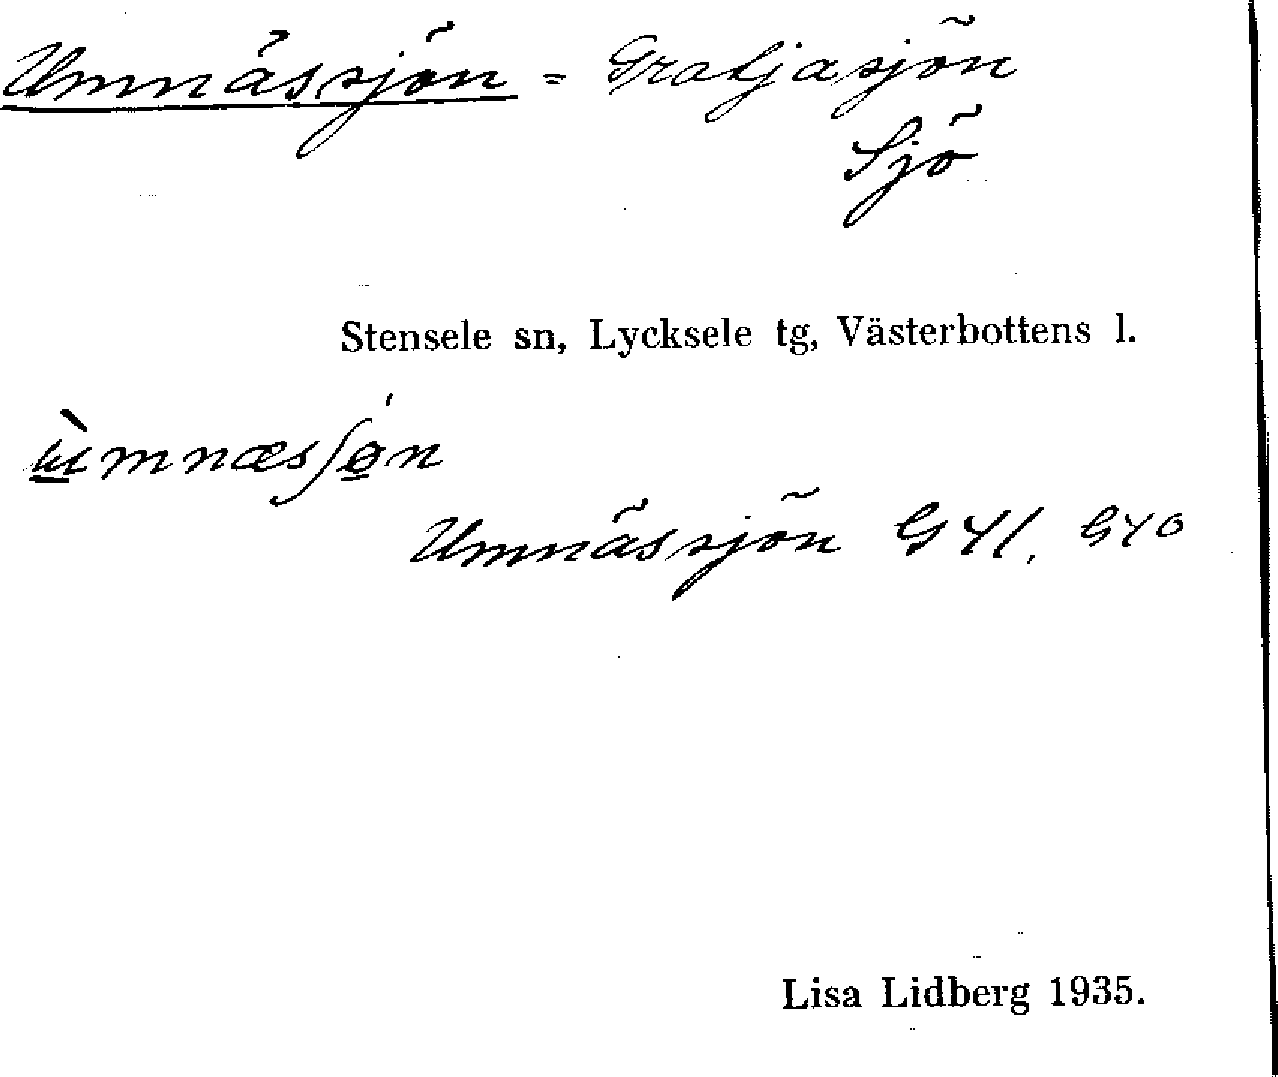 Umnässjön = Gratjasjön
Sjö
Stensele sn, Lycksele tg, Västerbottens l.
ùmnæsʃǿn
Umnässjön G41, G40
Lisa Lidberg 1935.